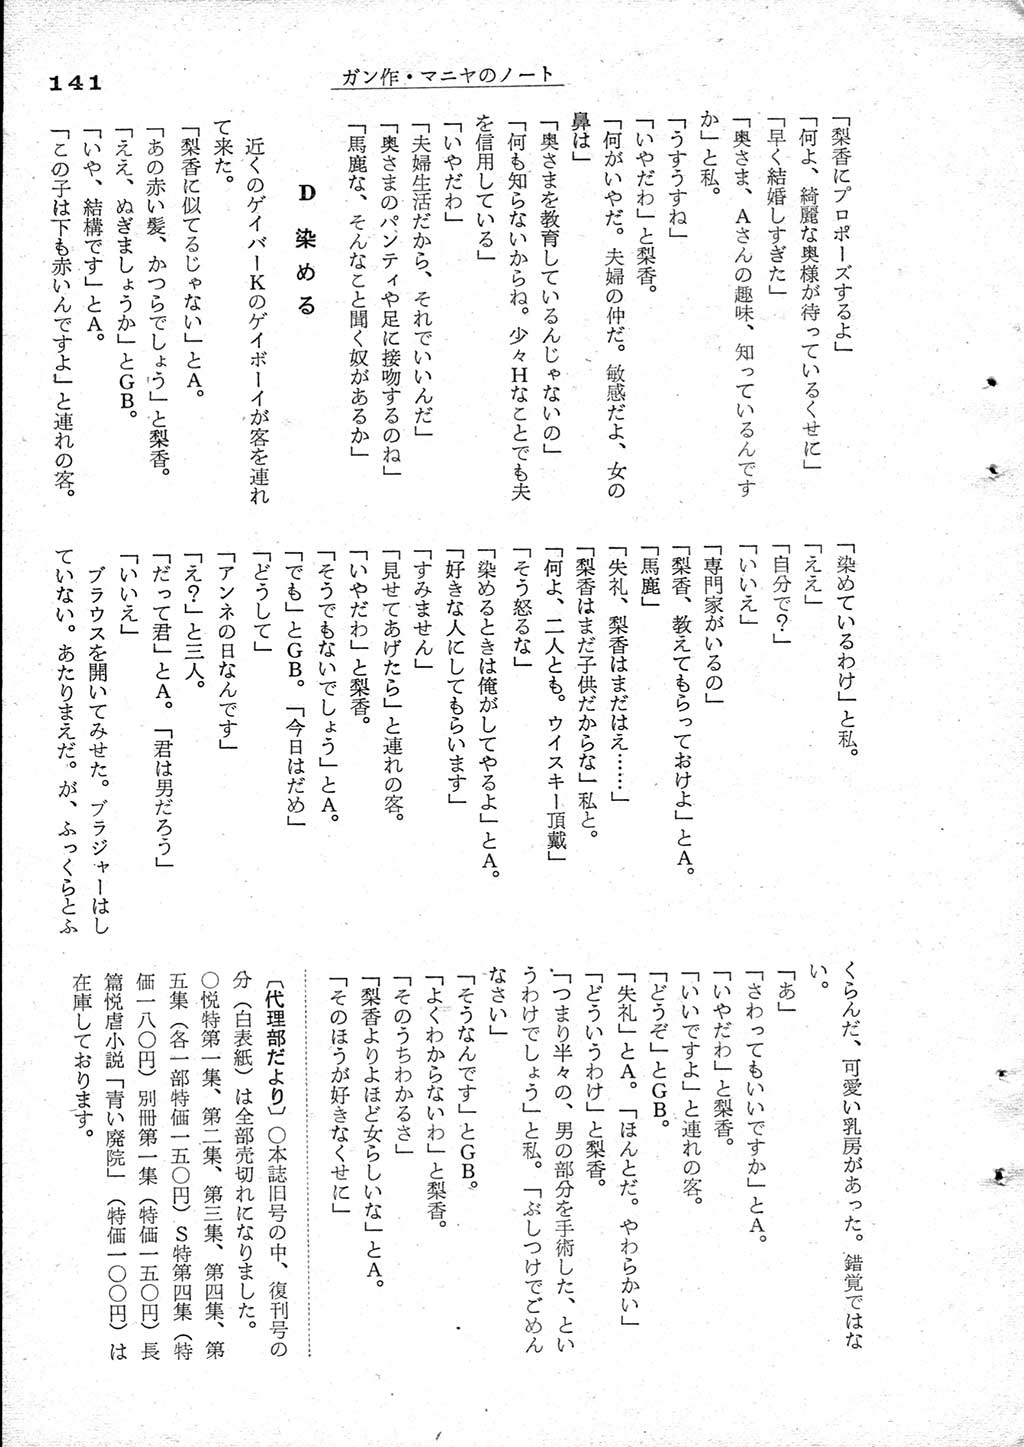 141
ガン作・マニヤのノート
「梨香にプロポーズするよ」
「何よ、綺麗な奥様が待っているくせに」
「早く結婚しすぎた」
「奥さま、Aさんの趣味、知っているんです
か」と私。
「うすうすね」
「いやだわ」と梨香。
「何がいやだ。夫婦の仲だ。敏感だよ、女の
鼻は」
「奥さまを教育しているんじゃないの」
「何も知らないからね。少々Hなことでも夫
を信用している」
「いやだわ」
「夫婦生活だから、それでいいんだ」
「奥さまのパンティや足に接吻するのね」
「馬鹿な、そんなこと聞く奴があるか」
D 染める
近くのゲイバーKのゲイボーイが客を連れ
て来た。
「梨香に似てるじゃない」とA。
「あの赤い髪、かつらでしょう」と梨香。
「ええ、ぬぎましょうか」とGB。
「いや、結構です」とA。
「この子は下も赤いんですよ」と連れの客。
「染めているわけ」と私。
「ええ」
「自分で？」
「いいえ」
「専門家がいるの」
「梨香、教えてもらっておけよ」とA。
「馬鹿」
「失礼、梨香はまだはえ……」
「梨香はまだ子供だからな」私と。
「何よ、二人とも。ウイスキー頂戴」
「そう怒るな」
「染めるときは俺がしてやるよ」とA。
「好きな人にしてもらいます」
「すみません」
「見せてあげたら」と連れの客。
「いやだわ」と梨香。
「そうでもないでしょう」とA。
「でも」とGB。「今日はだめ」
「どうして」
「アンネの日なんです」
「え？」と三人。
「だって君」とA。「君は男だろう」
「いいえ」
ブラウスを開いてみせた。ブラジャーはし
ていない。あたりまえだ。が、ふっくらとふ
くらんだ、可愛い乳房があった。錯覚ではな
い。
「あ」
「さわってもいいですか」とA。
「いやだわ」と梨香。
「いいですよ」と連れの客。
「どうぞ」とGB。
「失礼」とA。「ほんとだ。やわらかい」
「どういうわけ」と梨香。
「つまり半々の、男の部分を手術した、とい
うわけでしょう」と私。「ぶしつけでごめん
なさい」
「そうなんです」とGB。
「よくわからないわ」と梨香。
「そのうちわかるさ」
「梨香よりよほど女らしいな」とA。
「そのほうが好きなくせに」
〔代理部だより〕〇本誌旧号の中、復刊号の
分（白表紙）は全部売切れになりました。
〇悦特第一集、第二集、第三集、第四集、第
五集（各一部特価一五〇円）S特第四集（特
価一八〇円）別冊第一集（特価一五〇円）長
篇悦虐小説「青い廃院」（特価一〇〇円）は
在庫しております。